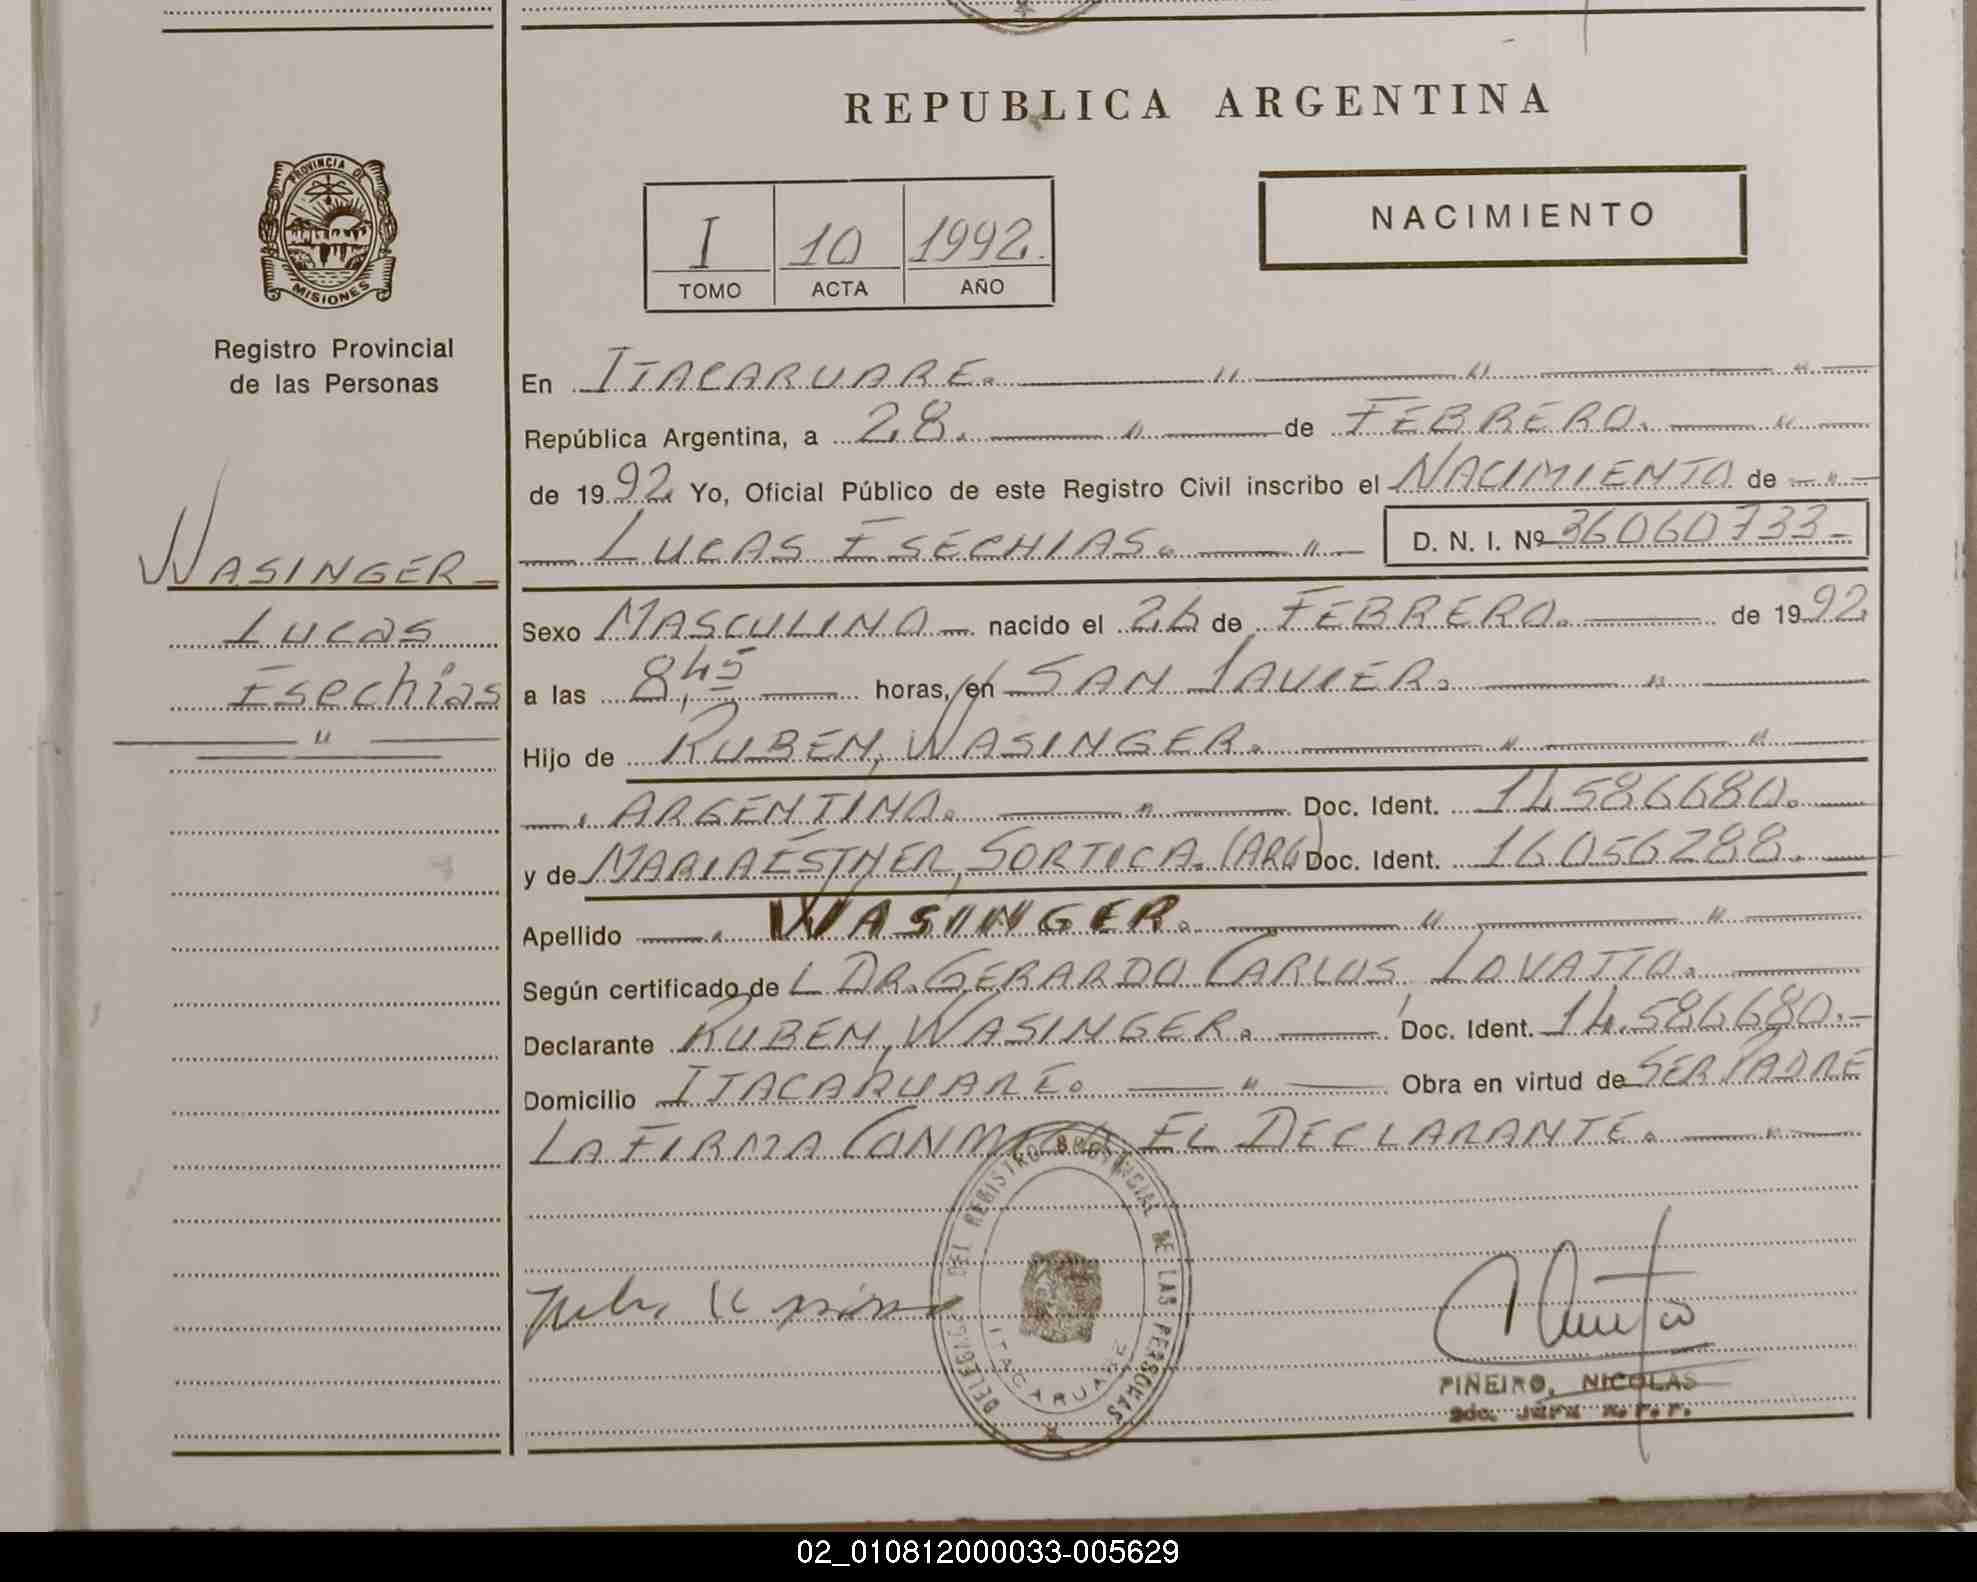 REPUBLICA ARGENTINA
PROVINCIA DE
MISIONES
Registro Provincial
de las Personas
NACIMIENTO
I 10 1992.
TOMO ACTA AÑO
En ITACARUARE. " " "
República Argentina, a 28. " de FEBRERO. "
de 1992 Yo, Oficial Público de este Registro Civil inscribo el NACIMIENTO de "
LUCAS ESECHIAS. " D. N. I. Nº 36060733-
WASINGER
Lucas
Esechias
"
Sexo MASCULINO nacido el 26 de FEBRERO. de 1992
a las 8,45 horas, en SAN JAVIER. "
Hijo de RUBEN, WASINGER. " "
ARGENTINO. " Doc. Ident. 14.586680.
y de MARIA ESTHER, SORTICA. (ARG) Doc. Ident. 16056288.
Apellido WASINGER. " "
Según certificado de L DR. GERARDO CARLOS LOVATTO.
Declarante RUBEN, WASINGER. Doc. Ident. 14.586680.-
Domicilio ITACARUARE. " Obra en virtud de SER PADRE
LA FIRMA CONMIGO EL DECLARANTE. "
DEL REGISTRO PROVINCIAL DE LAS PERSONAS
ITACARUARE
PINEIRO, NICOLAS
02_010812000033-005629